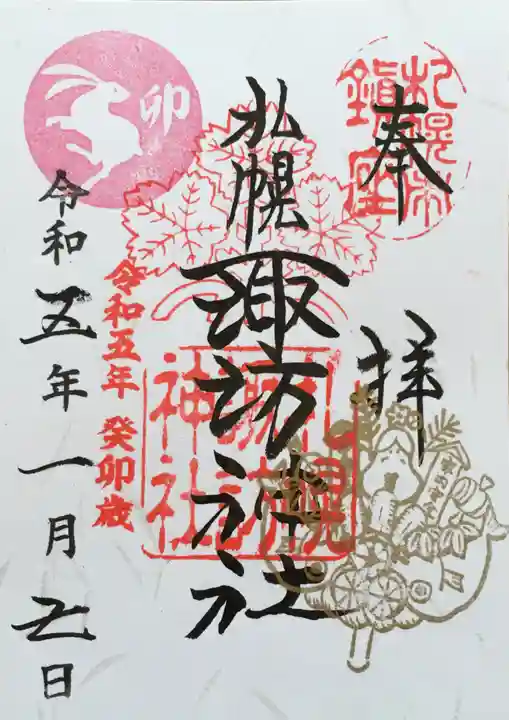 奉拝
札幌市
鎮座
札幌諏訪神社
札幌
諏訪
神社
令和五年 癸卯歳
卯
令和五年一月五日